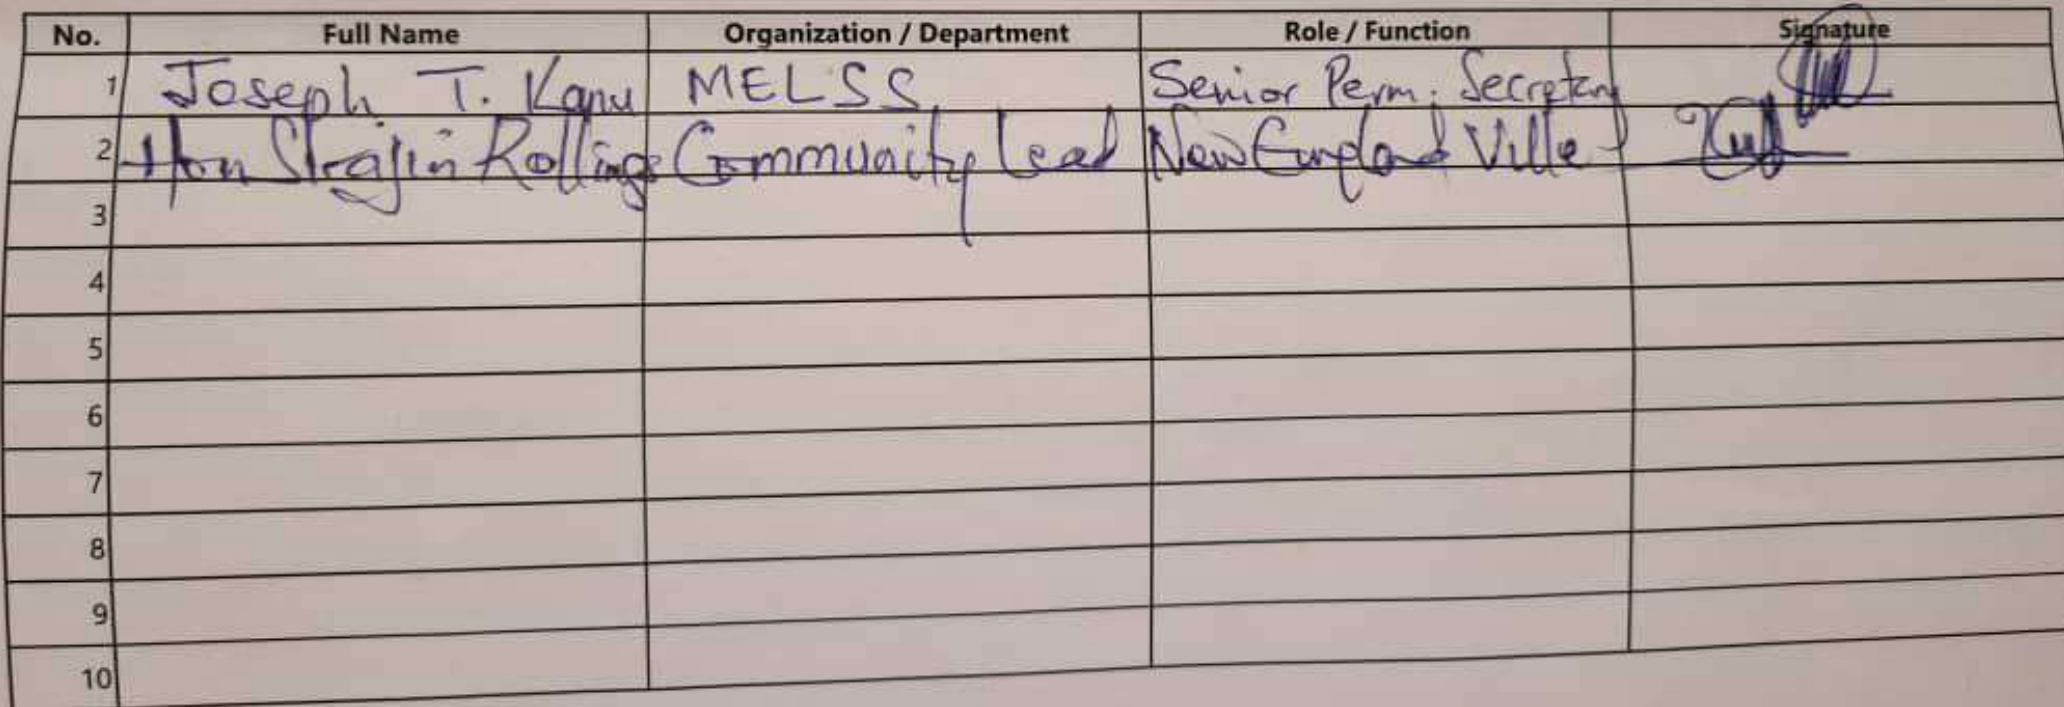 No. Full Name Organization / Department Role / Function Signature
1 Joseph T. Kanu MELSS Senior Perm. Secretary
2 Hon Rollings Community Lead New England Ville
3
4
5
6
7
8
9
10